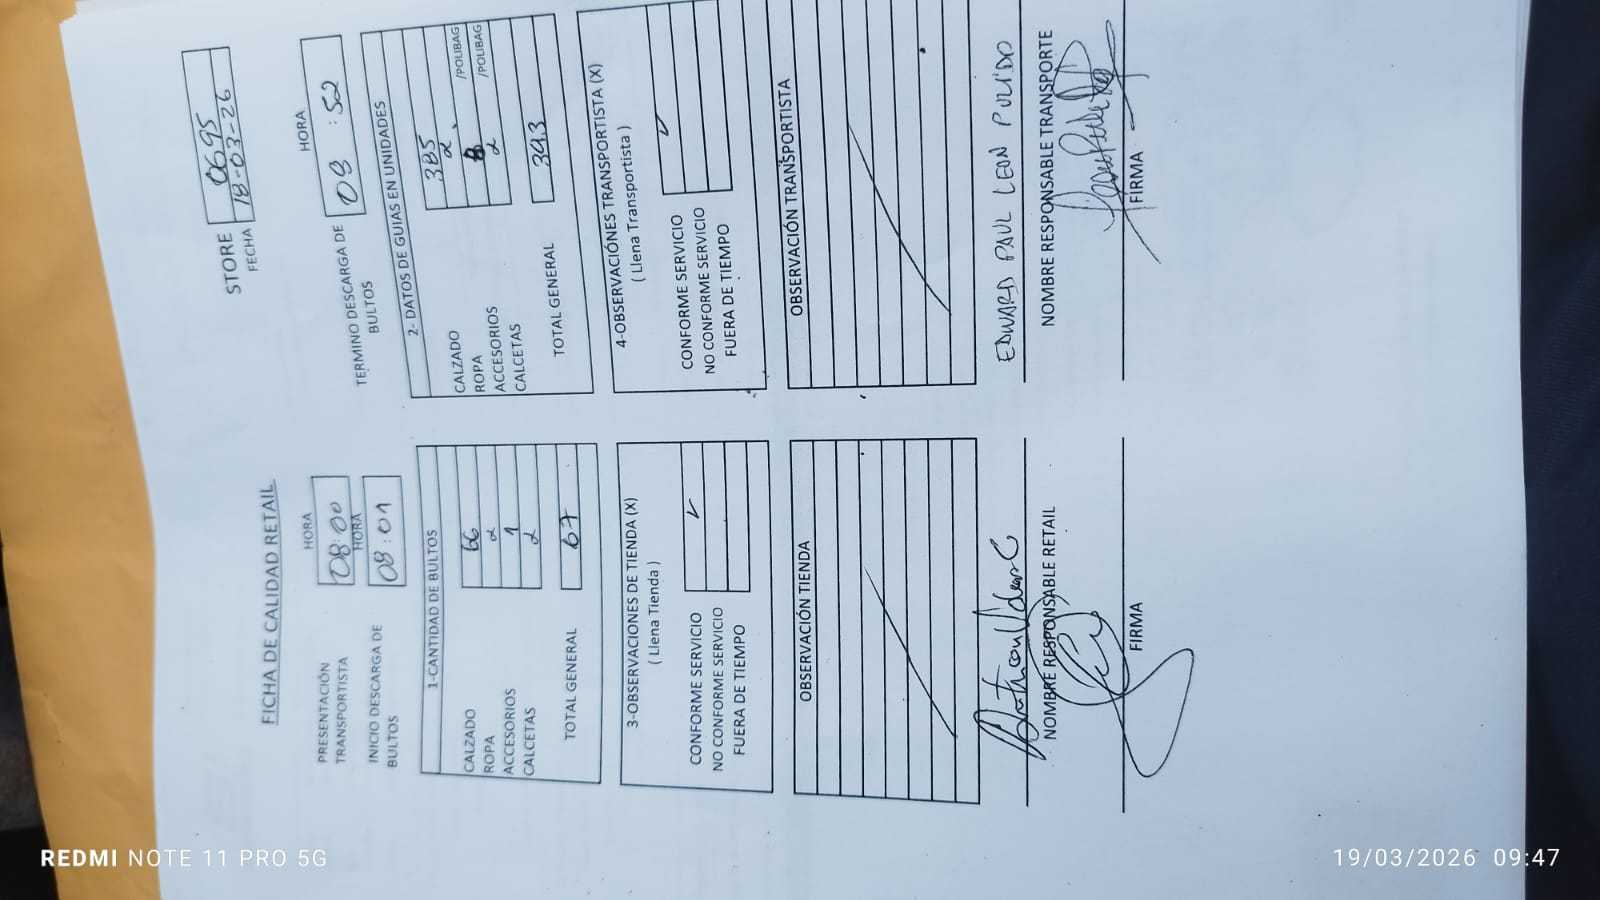 FICHA DE CALIDAD RETAIL
STORE 0695
FECHA 18-03-26
HORA
PRESENTACIÓN TRANSPORTISTA 08:00
HORA
INICIO DESCARGA DE BULTOS 08:01
HORA
TERMINO DESCARGA DE BULTOS 08:52
1-CANTIDAD DE BULTOS
CALZADO 66
ROPA 2
ACCESORIOS 1
CALCETAS 2
TOTAL GENERAL 67
2- DATOS DE GUIAS EN UNIDADES
CALZADO 385
ROPA 2 /POLIBAG
ACCESORIOS 8 /POLIBAG
CALCETAS 2
TOTAL GENERAL 393
3-OBSERVACIONES DE TIENDA (X)
( Llena Tienda )
CONFORME SERVICIO ✓
NO CONFORME SERVICIO
FUERA DE TIEMPO
4-OBSERVACIÓNES TRANSPORTISTA (X)
( Llena Transportista )
CONFORME SERVICIO ✓
NO CONFORME SERVICIO
FUERA DE TIEMPO
OBSERVACIÓN TIENDA
OBSERVACIÓN TRANSPORTISTA
NOMBRE RESPONSABLE RETAIL
FIRMA
EDWARD PAUL LEON PULIDO
NOMBRE RESPONSABLE TRANSPORTE
FIRMA
REDMI NOTE 11 PRO 5G
19/03/2026 09:47